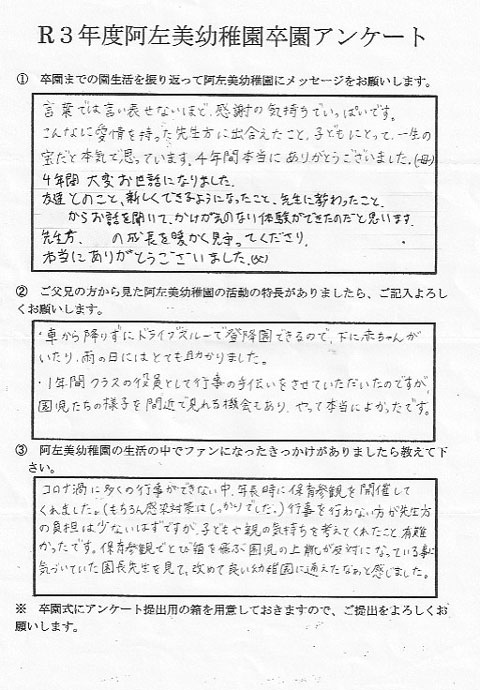 R3年度阿左美幼稚園卒園アンケート
① 卒園までの園生活を振り返って阿左美幼稚園にメッセージをお願いします。
言葉では言い表せないほど、感謝の気持ちでいっぱいです。
こんなに愛情を持った先生方に出会えたこと、子どもにとって、一生の
宝だと本気で思っています。4年間本当にありがとうございました。(母)
4年間 大変お世話になりました。
友達とのこと、新しくできるようになったこと、先生に教わったこと、
からお話を聞いて、かけがえのない体験ができたのだと思います。
先生方、 の成長を暖かく見守ってくださり、
本当にありがとうございました。(父)
② ご父兄の方から見た阿左美幼稚園の活動の特長がありましたら、ご記入よろし
くお願いします。
・車から降りずにドライブスルーで登降園できるので、下に赤ちゃんが
いたり、雨の日にはとても助かりました。
・1年間クラスの役員として行事の手伝いをさせていただいたのですが、
園児たちの様子を間近で見れる機会もあり、やって本当によかったです。
③ 阿左美幼稚園の生活の中でファンになったきっかけがありましたら教えて下
さい。
コロナ渦に多くの行事ができない中、年長時に保育参観を開催して
くれました。(もちろん感染対策はしっかりでした。)行事を行わない方が先生方
の負担は少ないはずですが、子どもや親の気持ちを考えてくれたこと有難
かったです。保育参観でとび箱を飛ぶ園児の上靴が反対になっている事に
気づいていた園長先生を見て、改めて良い幼稚園に通えたなぁと感じました。
※ 卒園式にアンケート提出用の箱を用意しておきますので、ご提出をよろしくお
願いします。